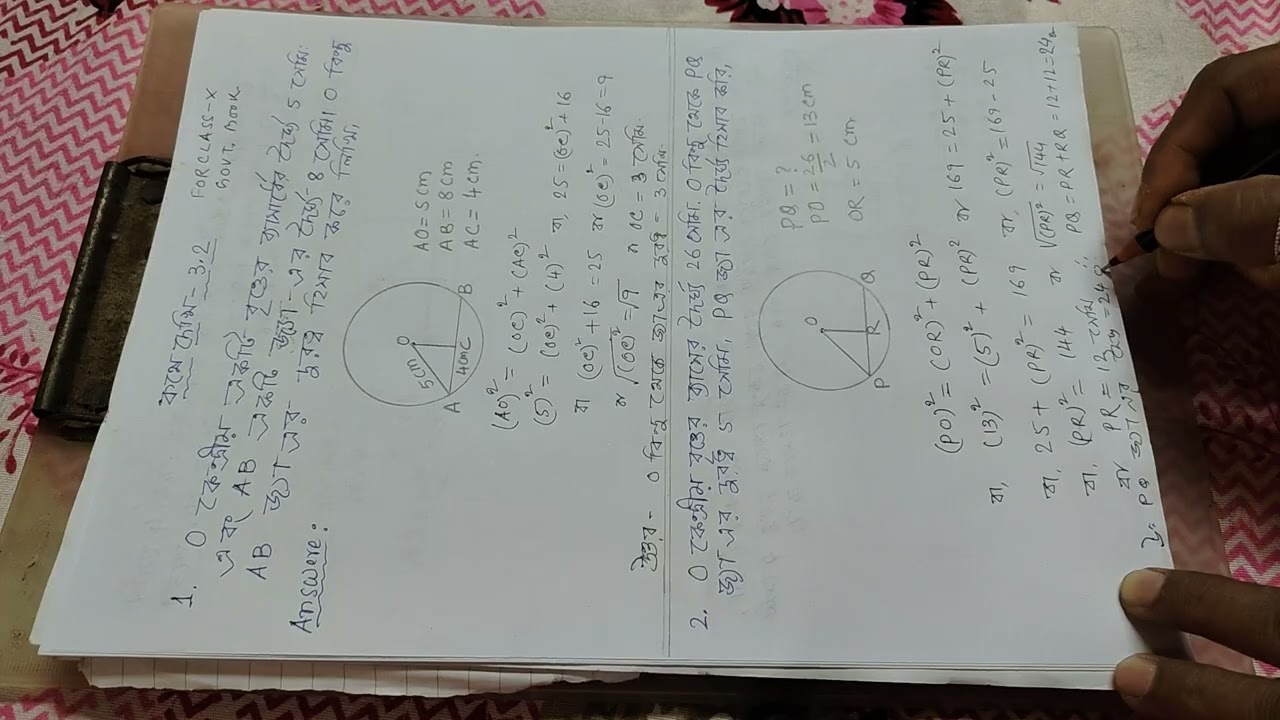 কষে দেখি - 3.2
FOR CLASS-X
GOVT. BOOK
1. O কেন্দ্রীয় একটি বৃত্তের ব্যাসার্ধের দৈর্ঘ্য 5 সেমি.
এবং AB একটি জ্যা-এর দৈর্ঘ্য 8 সেমি। O বিন্দু
AB জ্যা এর- দূরত্ব হিসাব করে লিখি।
Answere:
O
5cm
4cm
A
C
B
AO = 5cm
AB = 8cm
AC = 4cm.
(AO)² = (OC)² + (AC)²
(5)² = (OC)² + (4)² বা, 25 = (OC)² + 16
বা (OC)² + 16 = 25 বা (OC)² = 25-16 = 9
বা √(OC)² = √9 বা OC = 3 সেমি.
উত্তর - O বিন্দু থেকে জ্যা এর দূরত্ব = 3 সেমি.
2. O কেন্দ্রীয় বৃত্তের ব্যাসের দৈর্ঘ্য 26 সেমি. O বিন্দু থেকে PQ
জ্যা এর দূরত্ব 5 সেমি. PQ জ্যা এর দৈর্ঘ্য হিসাব করি,
O
P
R
Q
PQ = ?
PO = 26/2 = 13cm
OR = 5 cm
(PO)² = (OR)² + (PR)²
বা, (13)² = (5)² + (PR)² বা 169 = 25 + (PR)²
বা, 25 + (PR)² = 169 বা, (PR)² = 169 - 25
বা, (PR)² = 144 বা √(PR)² = √144
বা PR = 12 সেমি PQ = PR + RQ = 12+12 = 24
PQ জ্যা এর = 24